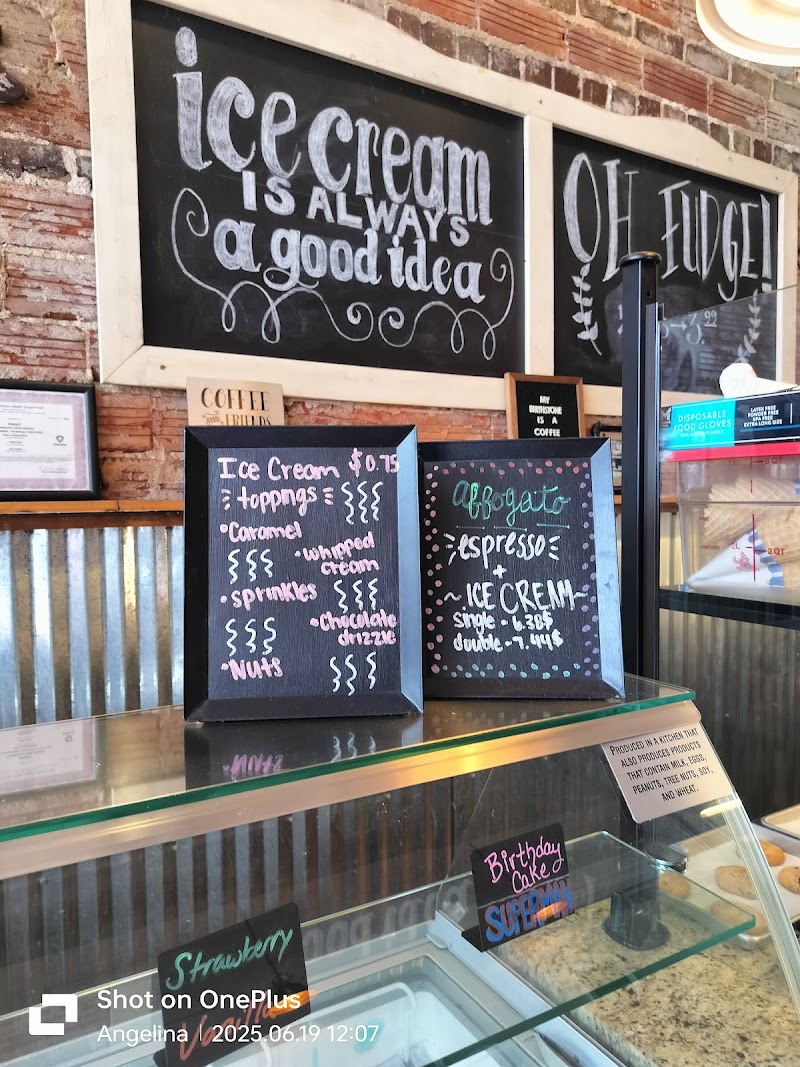 ice cream
IS ALWAYS
a good idea
OH FUDGE!
COFFEE
with
FRIENDS
MY
BIRTHSTONE
IS A
COFFEE
DISPOSABLE
FOOD GLOVES
LATEX FREE
POWDER FREE
BPA FREE
EXTRA LONG SIZE
2QT
Ice Cream $0.75
toppings
•Caramel
•whipped
cream
•sprinkles
•Chocolate
drizzle
•Nuts
affogato
espresso
+
~ICE CREAM~
single - 6.38$
double - 7.44$
PRODUCED IN A KITCHEN THAT
ALSO PRODUCES PRODUCTS
THAT CONTAIN MILK, EGGS,
PEANUTS, TREE NUTS, SOY,
AND WHEAT.
Birthday
Cake
SUPERMAN
Strawberry
Vanilla
Shot on OnePlus
Angelina | 2025.06.19 12:07